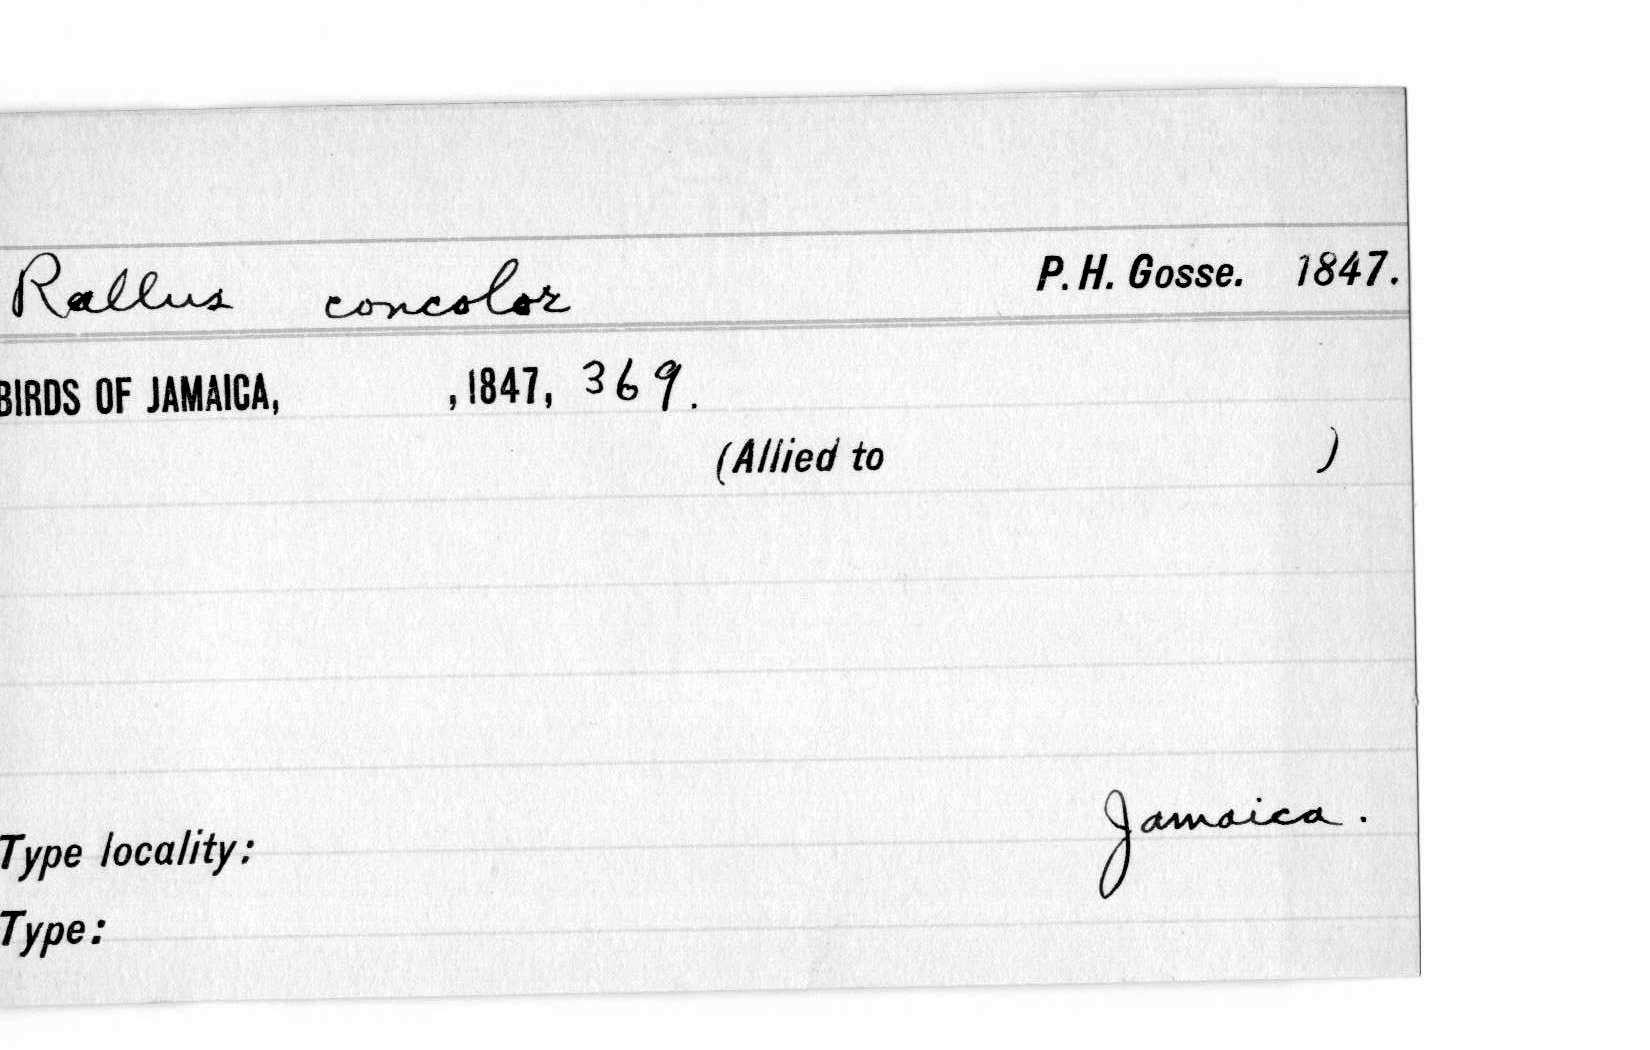 Rallus concolor P. H. Gosse. 1847.
BIRDS OF JAMAICA, , 1847, 369.
(Allied to )
Jamaica.
Type locality:
Type: